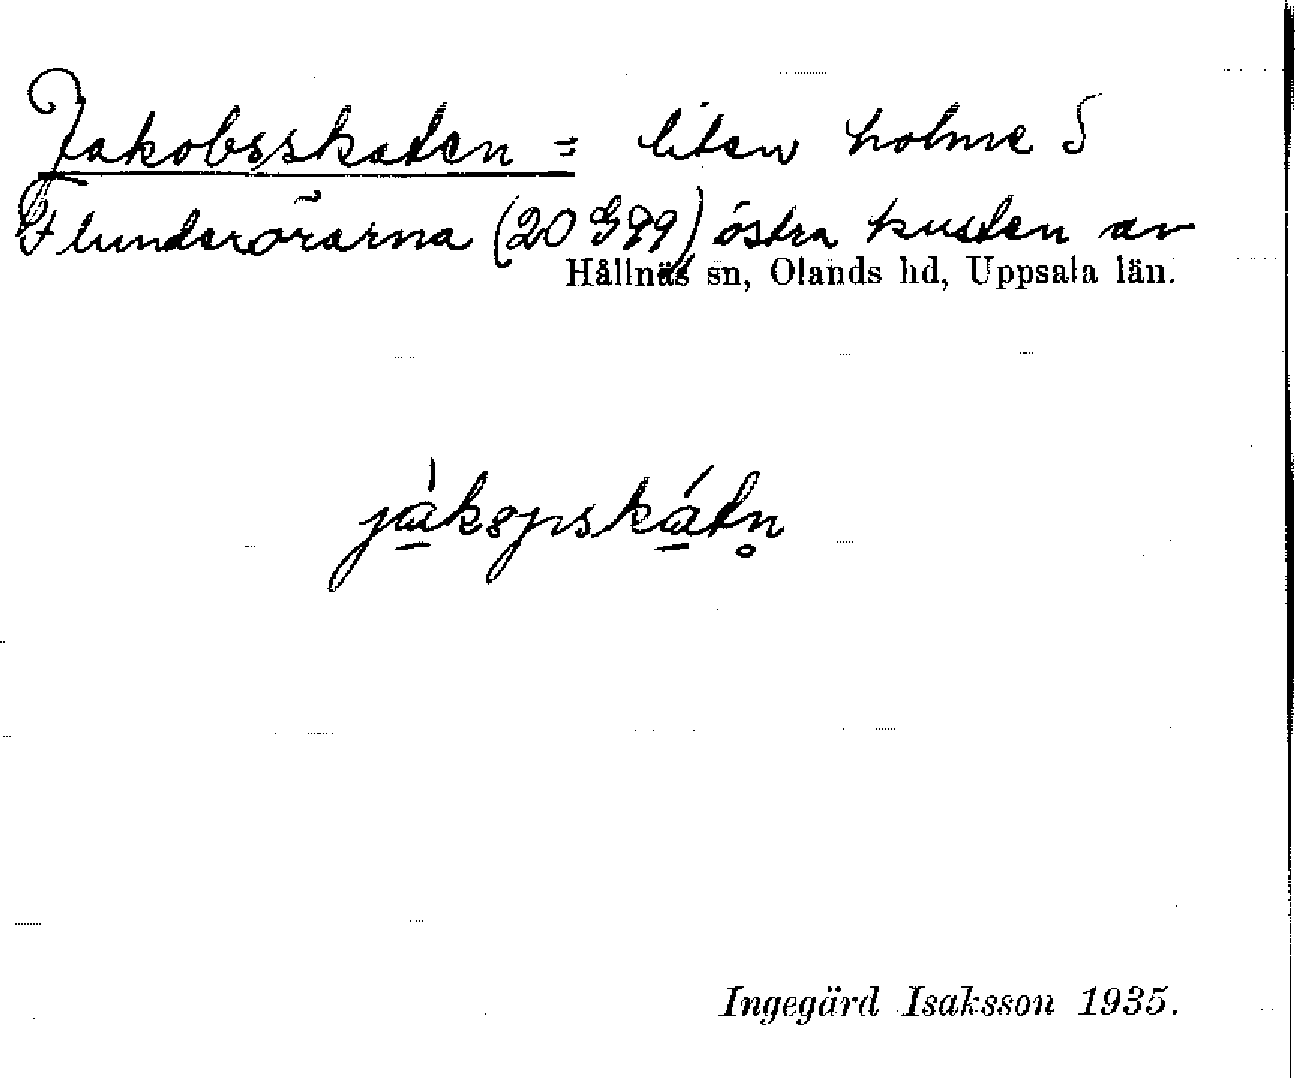 Jakobsskaten = liten holme S
Flunderörarna (20 G 89) östra kusten av
Hållnäs sn, Olands hd, Uppsala län.
jàkopskátn̥
Ingegärd Isaksson 1935.